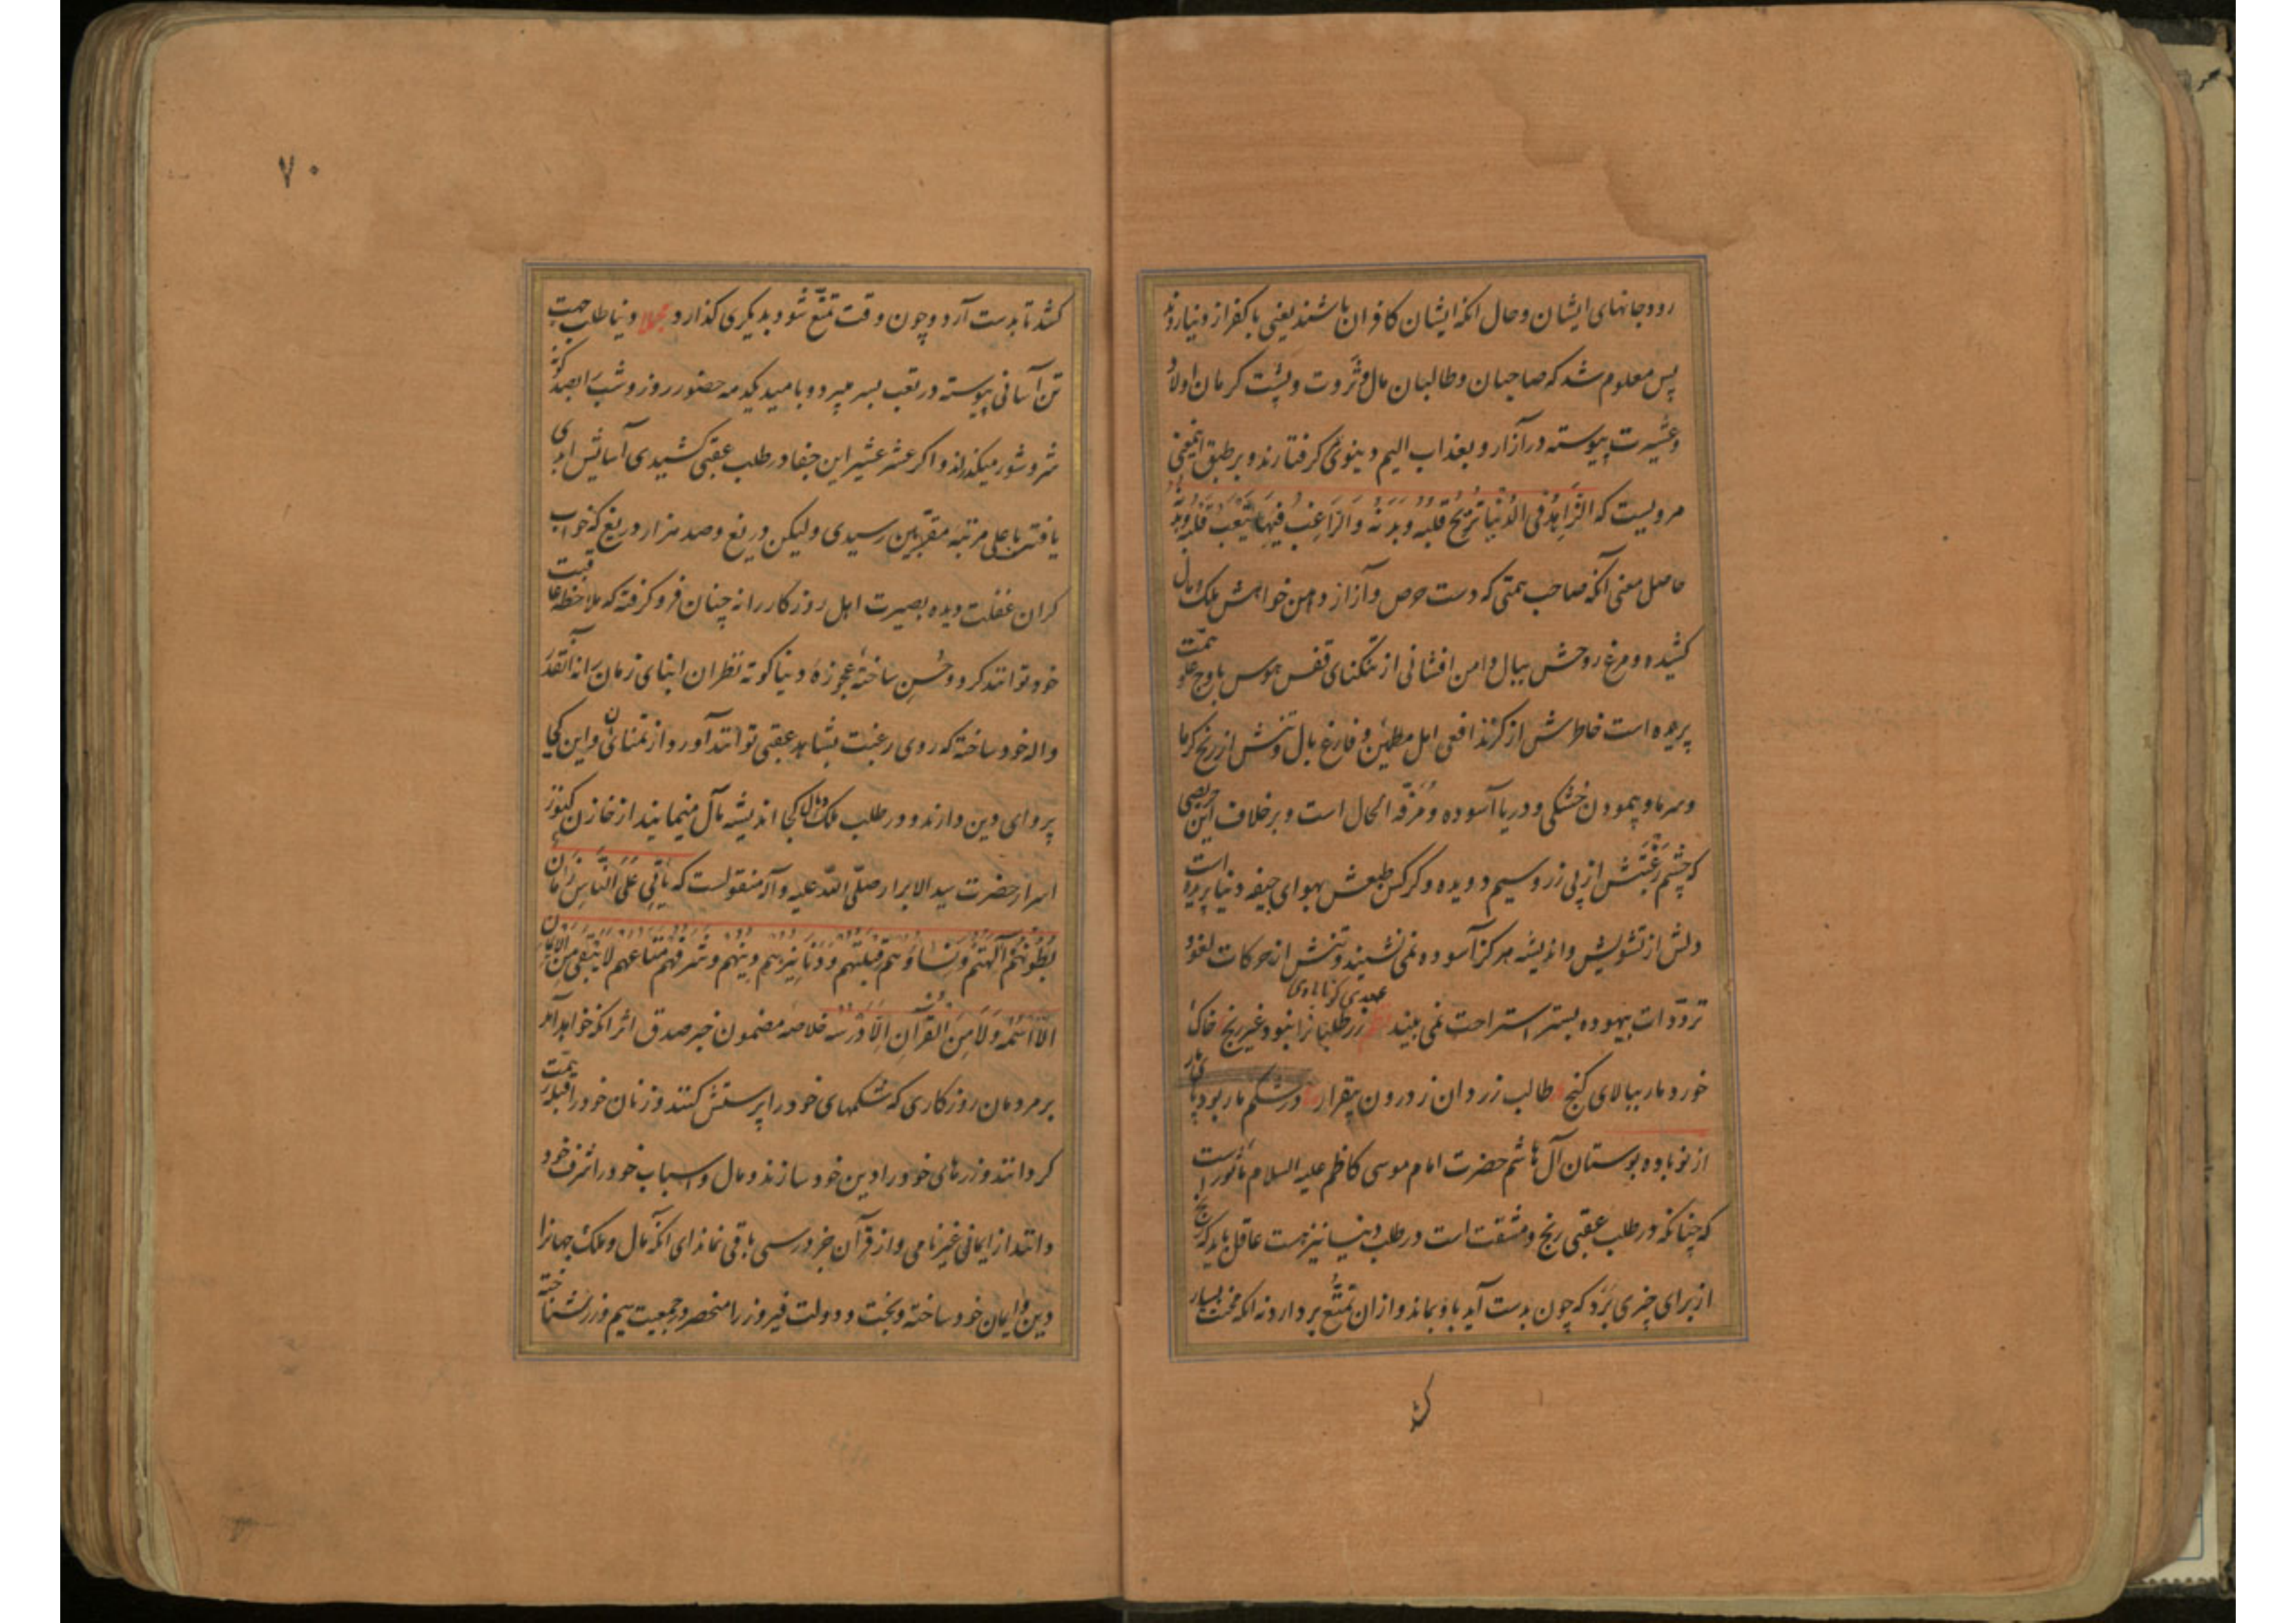 رود جانهای ایشان و حال آنکه ایشان کافران باشند یعنی با کفر از دنیا روند
پس معلوم شد که صاحبان و طالبان مال و ثروت و پشت گرمان اولاد
و عشیرت پیوسته در آزار و بعذاب الیم دنیوی گرفتارند و بر طبق اینمعنی
مرویست که الزاهد فی الدنیا تریح قلبه و بدنه و الراغب فیها یتعب قلبه و بدنه
حاصل معنی آنکه صاحب همتی که دست حرص و آز از دامن خواهش ملک و مال
کشیده و مرغ روحش ببال دامن افشانی از تنگنای قفس هوس باوج علو همت
پریده است خاطرش از گزند افعی امل مطمئن و فارغ بال و تنش از رنج گرما
و سرما و پیمودن خشکی و دریا آسوده و مرفه الحال است و بر خلاف این حریصی
که چشم رغبتش از پی زر و سیم دویده و کرکس طبعش بهوای جیفه دنیا پریده است
دلش از تشویش و اندیشه هرگز آسوده نمی نشیند و تنش از حرکات لغو و
ترددات بیهوده بستر استراحت نمی بیند زر طلبانرا نبود غیر رنج خاک
خورد مار ببالای گنج طالب زر دان ز درون بیقرار در شکم مار بود پای مار
از نوباوه بوستان آل هاشم حضرت امام موسی کاظم علیه السلام مأثور است
که چنانکه در طلب عقبی رنج و مشقت است در طلب دنیا نیز هست عاقل باید که رنج
از برای چیزی برد که چون بدست آید باو بماند و از آن تمتع بردارد نه آنکه محنت بسیار
۷۰
کشد تا بدست آرد و چون وقت تمتع شود بدیگری گذارد مجملا دنیا طلب جهت
تن آسانی پیوسته در تعب بسر میبرد و بامید یکدمه حضور روز و شب را بصد گونه
شر و شور میگذراند و اگر عشر عشیر این جفا در طلب عقبی کشیدی آسایش ابدی
یافتی باعلی مرتبه مقربین رسیدی ولیکن دریغ و صد هزار دریغ که خواب
گران غفلت دیده بصیرت اهل روزگار را نه چنان فرو گرفته که ملاحظه عاقبت
خود توانند کرد و حسن ساخته عجوزه دنیا کوته نظران ابنای زمان را نه آنقدر
واله خود ساخته که روی رغبت بشاهد عقبی توانند آورد از تمنای نان و این کی
پروای دین دارند و در طلب ملک و مال کجا اندیشه مآل مینمایند از خازن کنوز
اسرار حضرت سید الابرار صلی الله علیه و آله منقولست که یأتی علی الناس زمان
بطونهم آلهتهم و نساؤهم قبلتهم و دنانیرهم دینهم و شرفهم متاعهم لا یبقی من الایمان
الا اسمه ولا من القرآن الا درسه خلاصه مضمون خبر صدق اثر آنکه خواهد آمد
بر مردمان روزگاری که شکمهای خود را پرستش کنند و زنان خود را قبله همت
گردانند و زرهای خود را دین خود سازند و مال و اسباب خود را شرف خود
دانند از ایمانی غیر نامی و از قرآن جز درسی باقی نماند ای آنکه مال و ملک جهانرا
دین و ایمان خود ساخته و بخت و دولت فیروز را منحصر در جمعیت سیم و زر شناخته